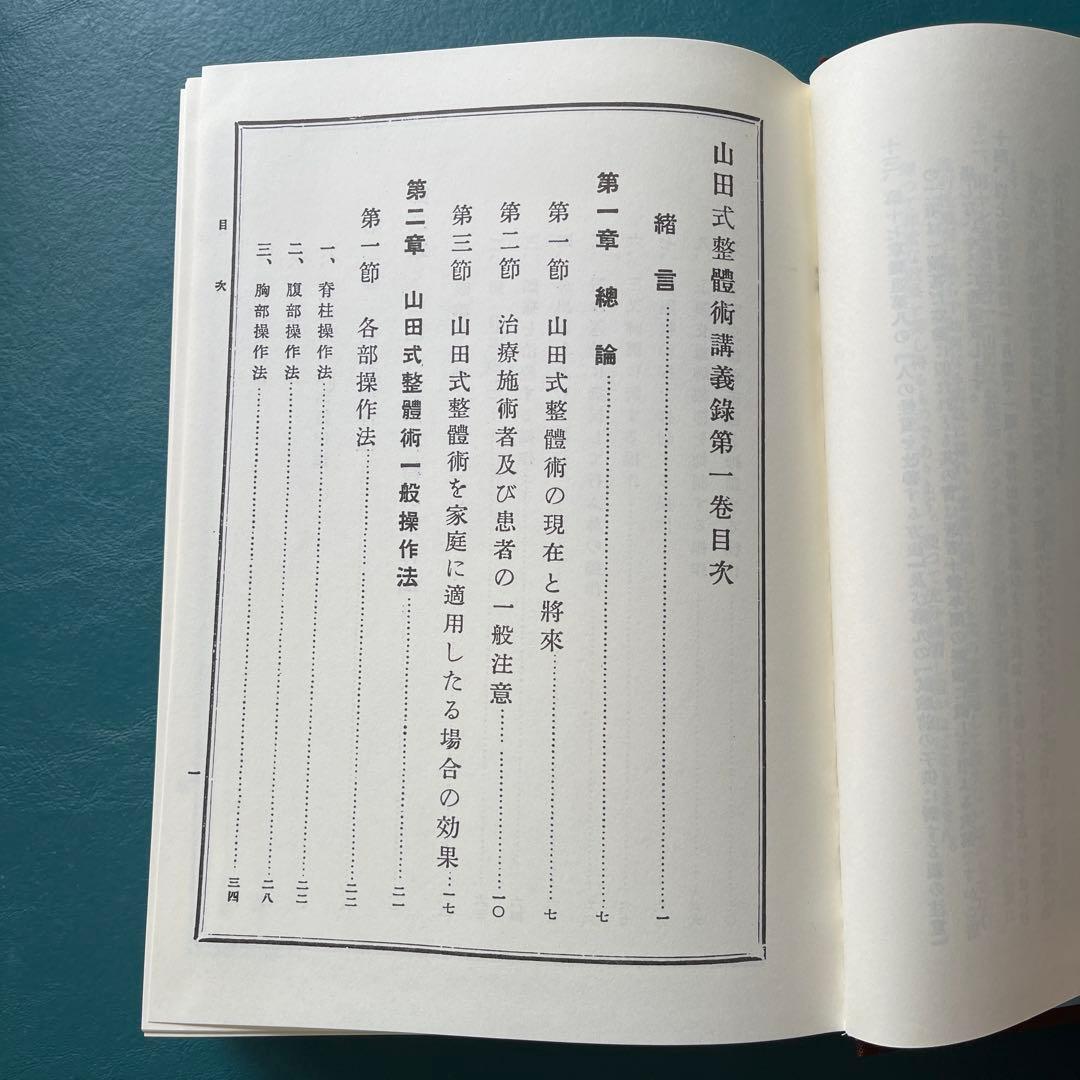 山田式整體術講義錄第一卷目次
緒言……一
第一章 總論……七
第一節 山田式整體術の現在と將來……七
第二節 治療施術者及び患者の一般注意……一〇
第三節 山田式整體術を家庭に適用したる場合の効果…一七
第二章 山田式整體術一般操作法……二一
第一節 各部操作法……二二
一、脊柱操作法……二二
二、腹部操作法……二八
三、胸部操作法……三四
目次
一